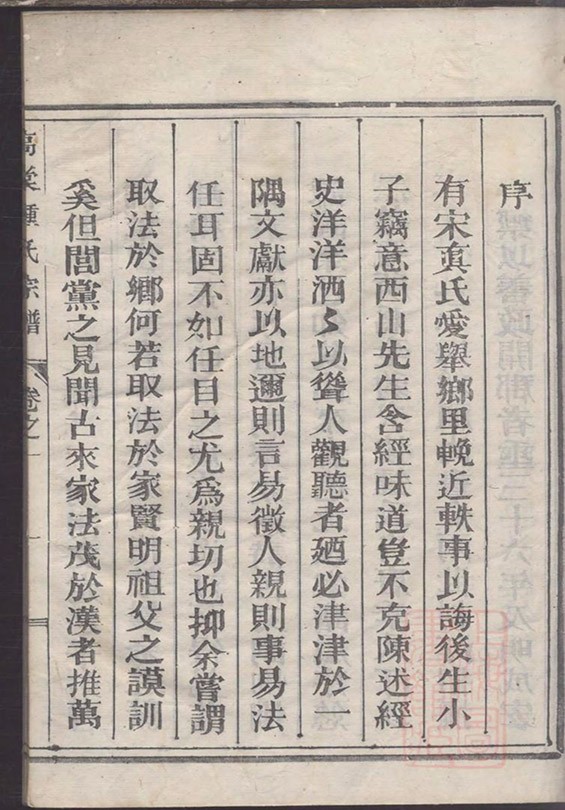 序
有宋真氏愛舉鄉里輓近軼事以誨後生小
子竊意西山先生含經味道豈不克陳述經
史洋洋洒〻以聳人觀聽者廼必津津於一
隅文獻亦以地邇則言易徵人親則事易法
任耳固不如任目之尤為親切也抑余嘗謂
取法於鄉何若取法於家賢明祖父之謨訓
奚但閭黨之見聞古來家法茂於漢者推萬
氏宗譜
卷之一